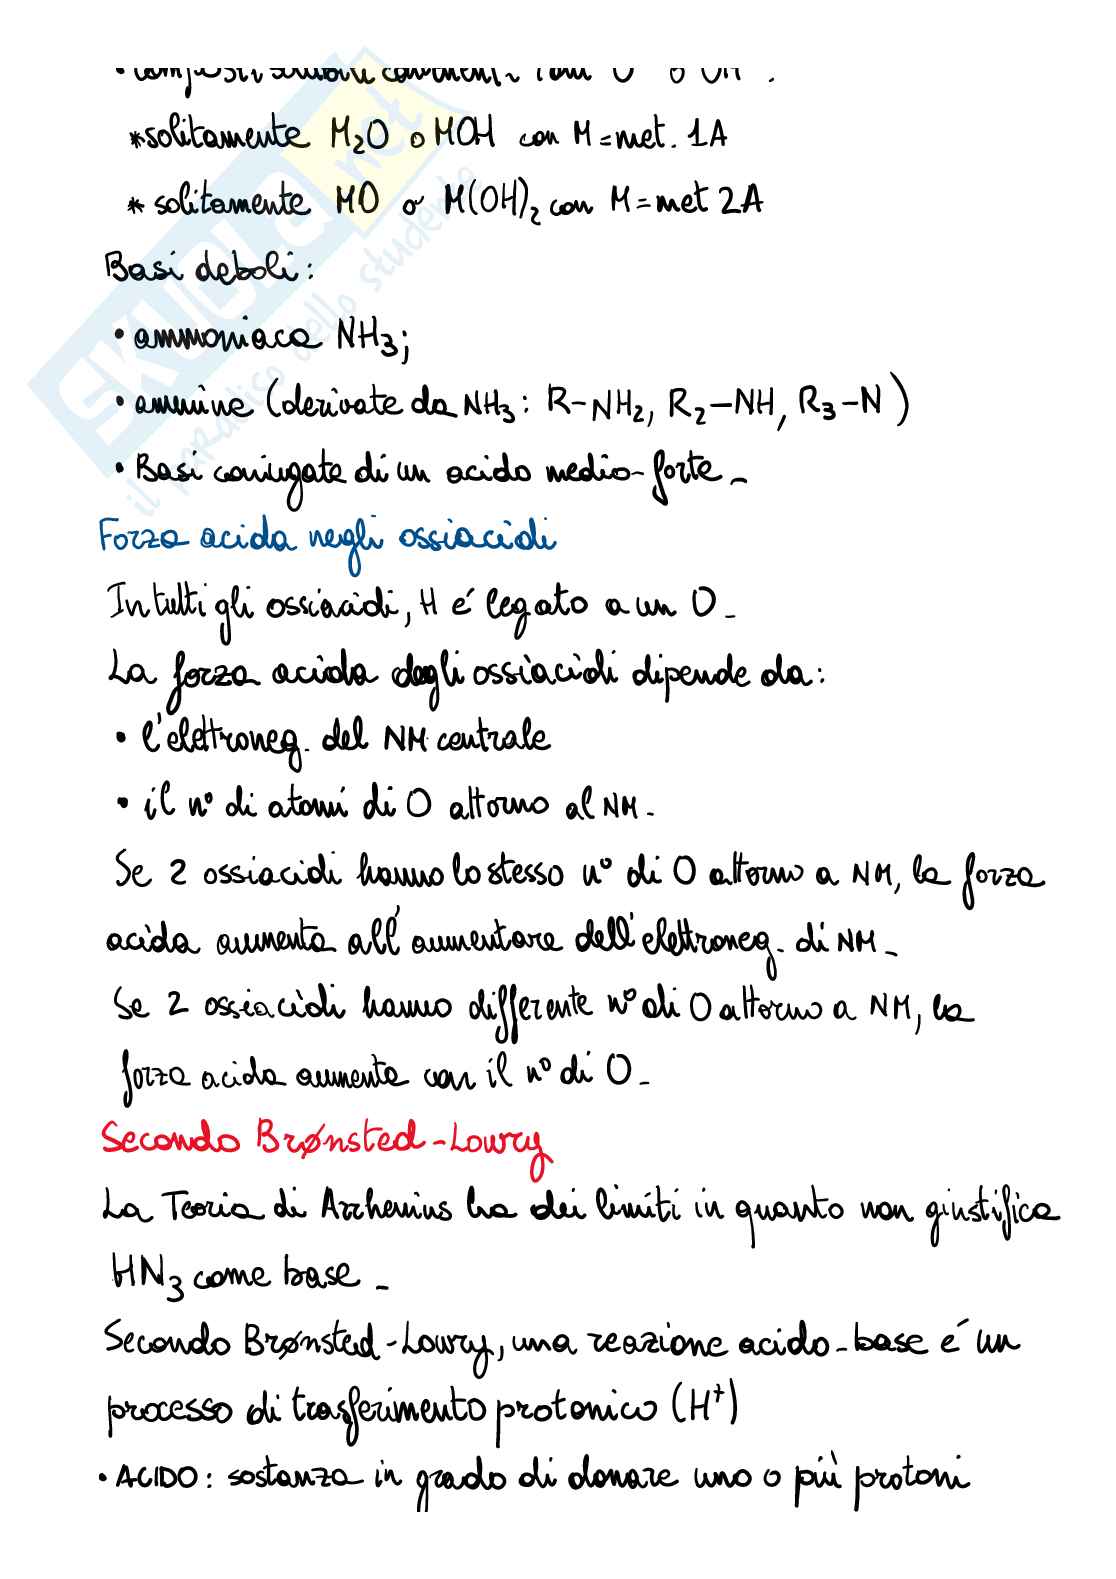 • composti solubili contenenti ioni O o OH .
*solitamente M₂O o MOH con M=met. 1A
* solitamente MO o M(OH)₂ con M=met 2A
Basi deboli:
• ammoniaca NH₃;
• ammine (derivate da NH₃: R-NH₂, R₂-NH, R₃-N)
• Basi coniugate di un acido medio-forte_
Forza acida negli ossiacidi
In tutti gli ossiacidi, H é legato a un O_
La forza acida degli ossiacidi dipende da:
• l'elettroneg. del NM centrale
• il n° di atomi di O attorno al NM.
Se 2 ossiacidi hanno lo stesso n° di O attorno a NM, la forza
acida aumenta all'aumentare dell'elettroneg. di NM_
Se 2 ossiacidi hanno differente n° di O attorno a NM, la
forza acida aumenta con il n° di O_
Secondo Brønsted-Lowry
La Teoria di Arrhenius ha dei limiti in quanto non giustifica
HN₃ come base_
Secondo Brønsted-Lowry, una reazione acido-base é un
processo di trasferimento protonico (H⁺)
• ACIDO: sostanza in grado di donare uno o più protoni
SKUOLA.net
il paradiso dello studente